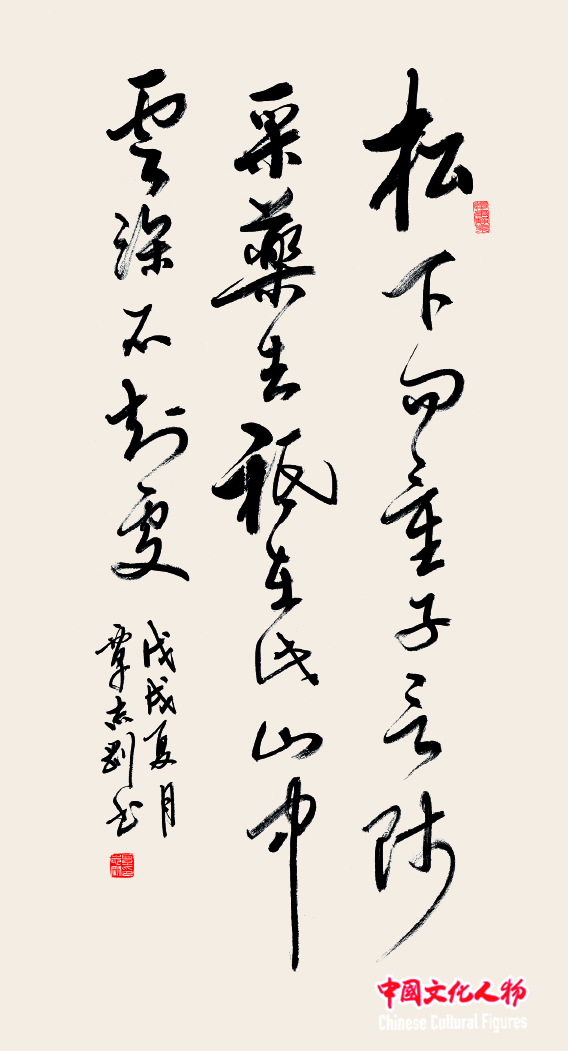 松下問童子言師
采藥去祗在此山中
雲深不知處
戊戌夏月
覃志剛書
中國文化人物
Chinese Cultural Figures